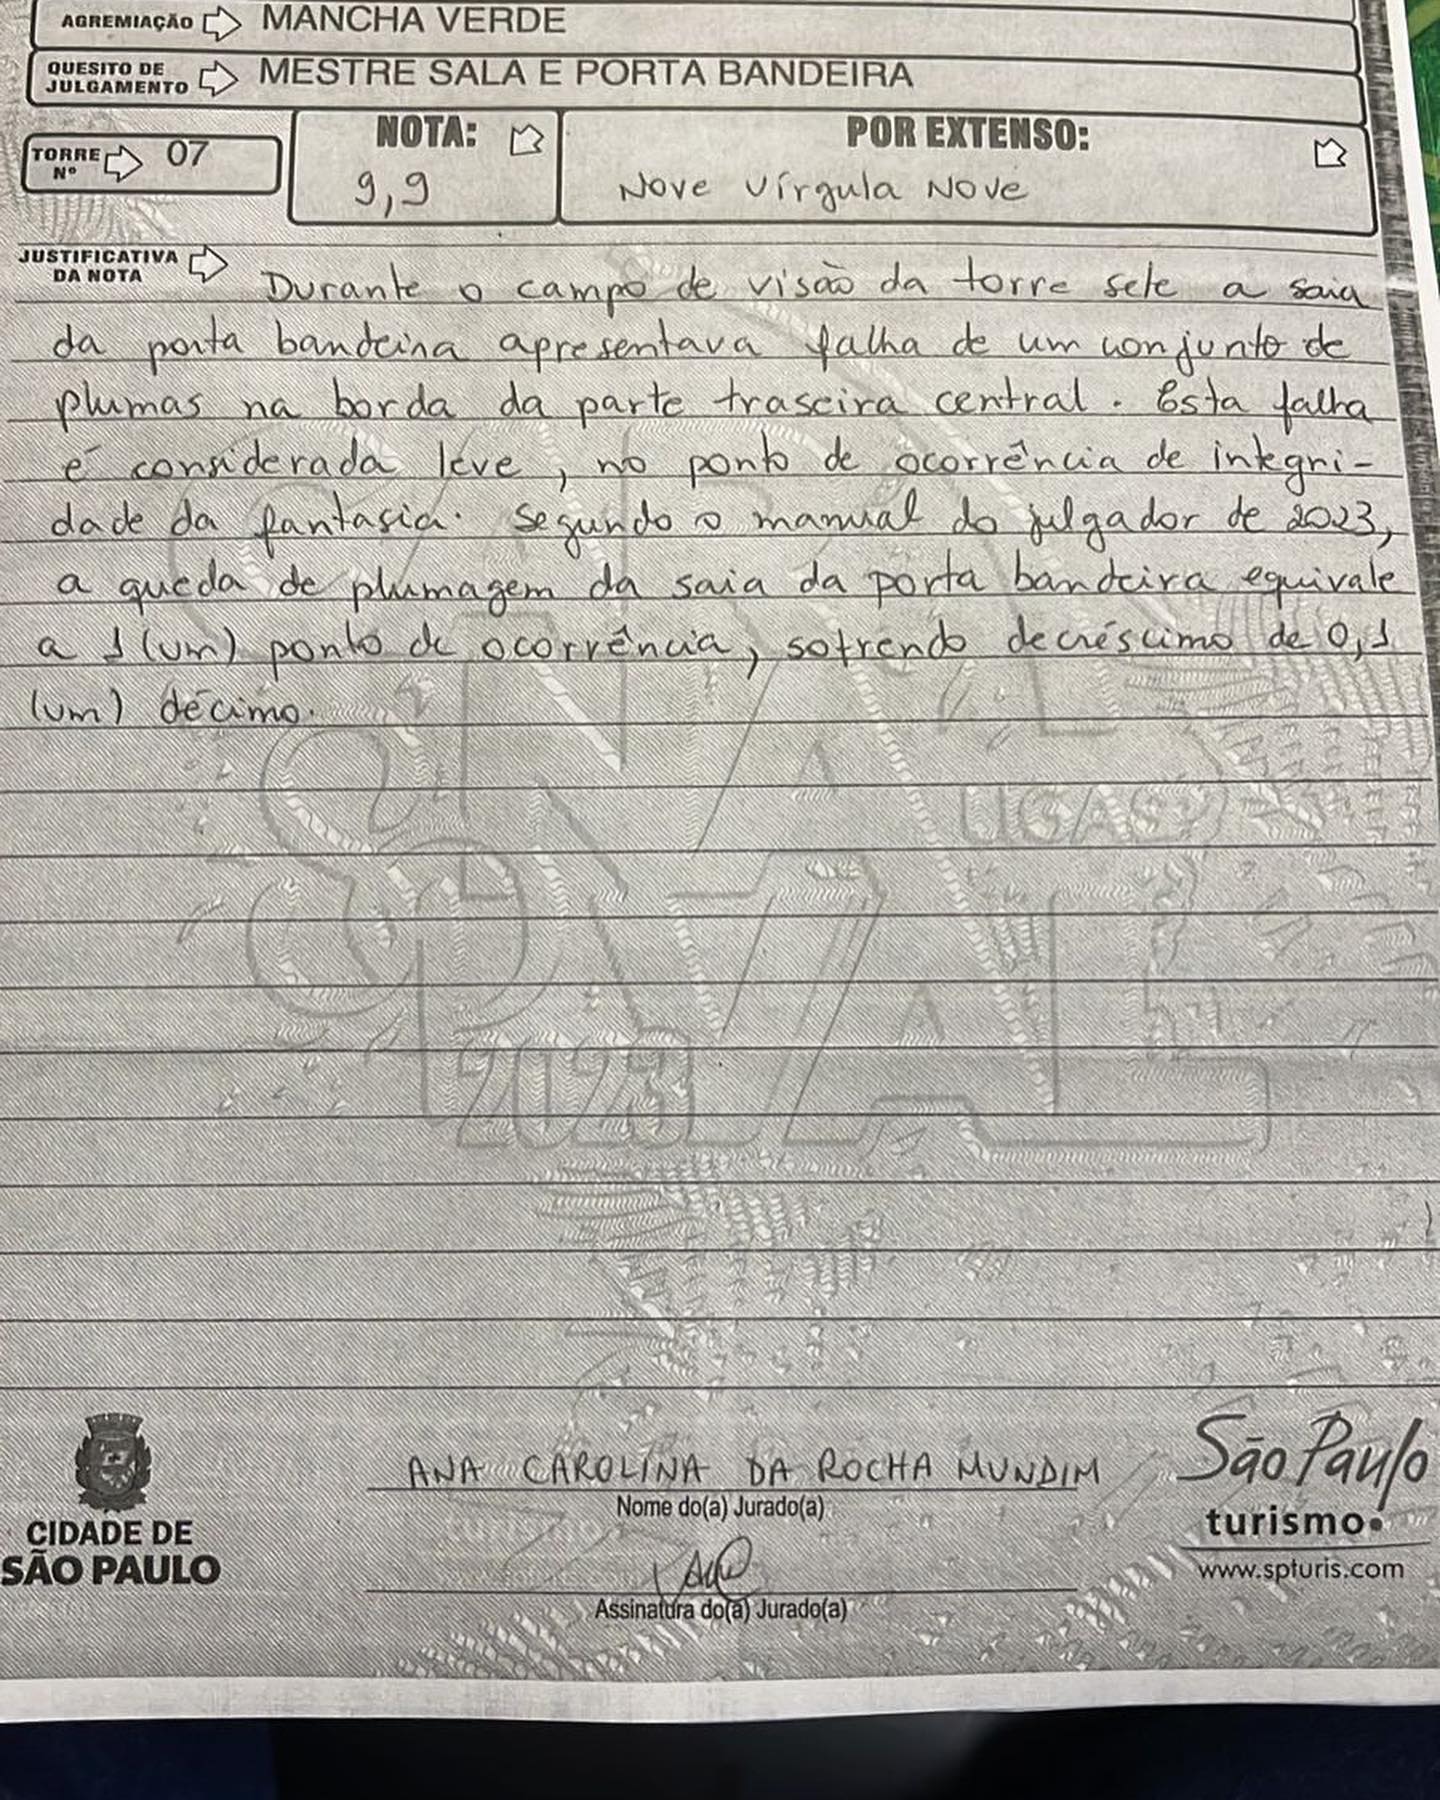 AGREMIAÇÃO MANCHA VERDE
QUESITO DE JULGAMENTO MESTRE SALA E PORTA BANDEIRA
TORRE Nº 07
NOTA:
9,9
POR EXTENSO:
Nove vírgula Nove
JUSTIFICATIVA DA NOTA
Durante o campo de visão da torre sete a saia
da porta bandeira apresentava falha de um conjunto de
plumas na borda da parte traseira central. Esta falha
é considerada leve, no ponto de ocorrência de integri-
dade da fantasia. Segundo o manual do julgador de 2023,
a queda de plumagem da saia da porta bandeira equivale
a 1 (um) ponto de ocorrência, sofrendo decréscimo de 0,1
(um) décimo.
LIGASP
2023
CIDADE DE
SÃO PAULO
ANA CAROLINA DA ROCHA MUNDIM
Nome do(a) Jurado(a)
Assinatura do(a) Jurado(a)
São Paulo
turismo.
www.spturis.com